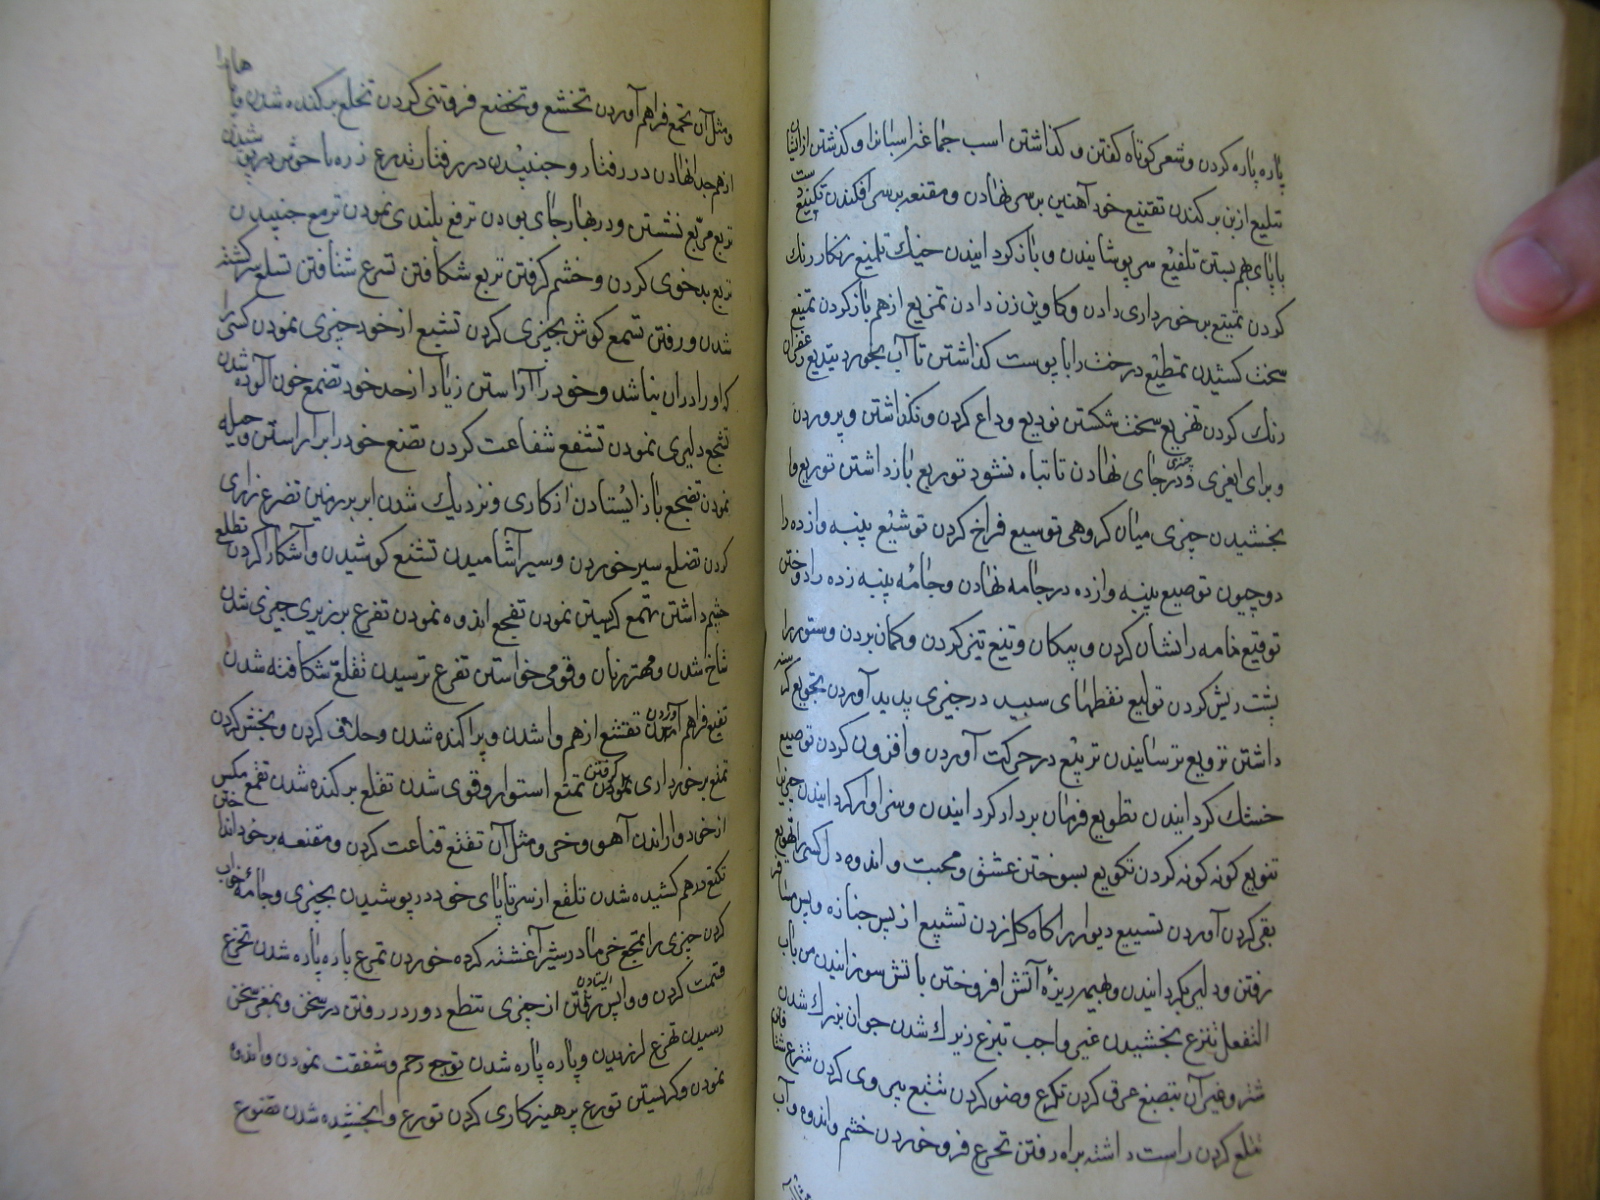 پاره پاره کردن و شعر کوتاه گفتن و گذاشتن اسب جماعتی اسبانرا و گذشتن از ایشان
تبلیع از بن برکندن تقنیع خود آهنین بر سر نهادن و مقنعه بر سر افکندن تکنیع دست
با پای بهم بستن تلفیع سر پوشانیدن و باز گردانیدن خیک تلمیع رنگارنگ
کردن تمتیع برخورداری دادن و کاوین زن دادن تمزیع از هم باز کردن تمنیع
سخت کشیدن تمظیع درخت را با پوست گذاشتن تا آب بخورد تیدیع زعفران
رنگ کردن تهزیع سخت شکستن تودیع وداع کردن و نگذاشتن و پروردن
و برای چیزی در جای نهادن تا تباه نشود توریع باز داشتن توزیع وا
بخشیدن چیزی میان گروهی توسیع فراخ کردن توشیع پنبه وازده را
دوختن توصیع پنبه وازده در جامه نهادن و جامه پنبه زده را دوختن
توقیع نامه را نشان کردن و پیکان و تیغ تیز کردن و گمان بردن و ستور را
پشت ریش کردن تولیع نقطهای سپید در چیزی پدید آوردن تجویع گرسنه
داشتن ترویع ترسانیدن تریع در حرکت آوردن و افزون کردن توصیع
خشک گردانیدن تطویع فرمان بردار گردانیدن و سزاوار گردانیدن چیزی
تنویع گونه گونه کردن تکویع بسوختن عشق و محبت و اندوه دل کسی را تهویع
بقی کردن آوردن تسییع دیوار را کاه گل زدن تشییع از پس جنازه و پس مسافر
رفتن و دلیر گردانیدن و بهیمه ریزه آتش افروختن با تش سوزانیدن من باب
التفعل تبرع بخشیدن غیر واجب تبزع زیرک شدن جوان بزرگ شدن
شر و غیر آن تبصع عرق کردن تکرع وضو کردن تتبع پیروی کردن تترع شتافتن
تلع کردن راست داشته براه رفتن تجرع فرو خوردن خشم و اندوه و آب
و مثل آن تجمع فراهم آوردن تخشع و تخضع فروتنی کردن تخلع برکنده شدن
از هم جدا نهادن در رفتار و جنبیدن در رفتار تدرع زره یا جوشن در پوشیدن
تربع مربع نشستن و در بهار جای بودن ترفع بلندی نمودن ترمع جنبیدن
تزبع بدخوی کردن و خشم گرفتن تزیع شکافتن تسرع شتافتن تسلع سرگشته
شدن و رفتن تسمع گوش بچیزی کردن تشبع از خود چیزی نمودن کسی را
که او را در آن نباشد و خود را آراستن زیاد از حد خود تضمع خون آلوده شدن
تشجع دلیری نمودن تشفع شفاعت کردن تصنع خود را بر آراستن و حیله
نمودن تضجع باز ایستادن از کاری و نزدیک شدن ابر بر زمین تضرع زاری
کردن تضلع سیر خوردن و سیر آشامیدن تشنع کوشیدن و آشکارا کردن تطلع
چشم داشتن تهمع گریستن نمودن تفجع اندوه نمودن تفرع بر زبری چیزی شدن
شاخ شدن و مهتر زنان و قومی خواستن تفزع ترسیدن تفلع شکافته شدن
فراهم آمدن تقشع از هم وا شدن و پراکنده شدن و خلاف کردن و بخش کردن
تمتع برخورداری گرفتن تمنع استوار و قوی شدن تقلع برکنده شدن تقمع مگس
از خود راندن آهو و خر و مثل آن تقنع قناعت کردن و مقنعه بر خود انداختن
تکنع در هم کشیده شدن تلفع از سر تا پای خود در پوشیدن بچیزی و جامه خواب
کردن چیزی را تمجع خرما در شیر آغشته کرده خوردن تمزع پاره پاره شدن تجزع
قسمت کردن و واپس ایستادن از چیزی تنطع دور در رفتن در سخن و بمغز سخن
رسیدن تهزع لرزیدن و پاره پاره شدن توجع رحم و شفقت نمودن و اندوه
نمودن و گریستن تورع پرهیزکاری کردن توزع وابخشیده شدن تضوع